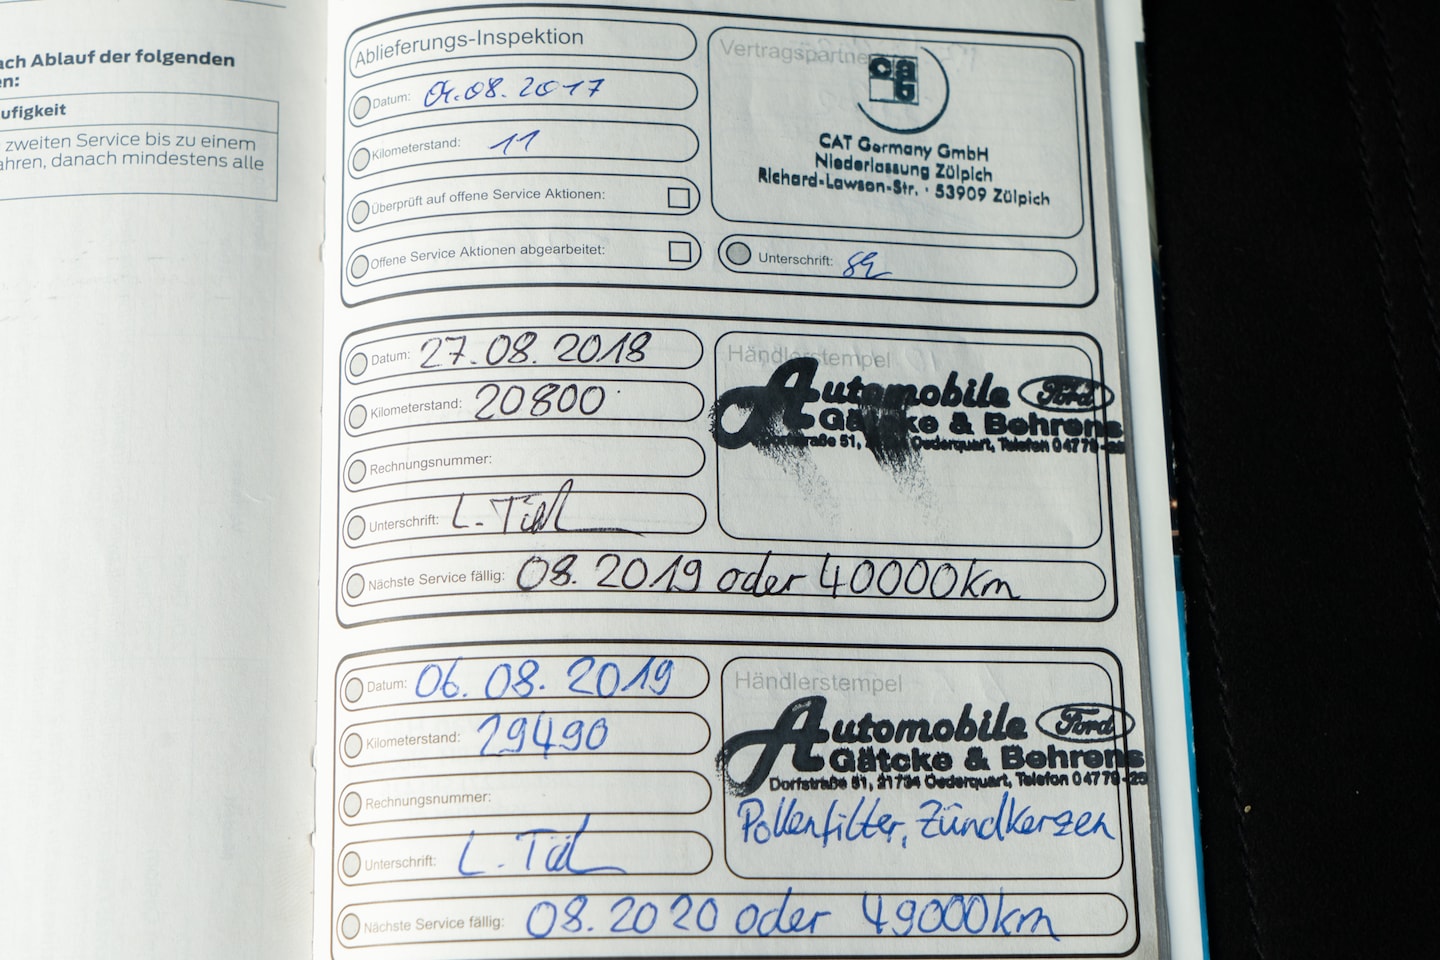 ach Ablauf der folgenden
en:
ufigkeit
zweiten Service bis zu einem
ahren, danach mindestens alle
Ablieferungs-Inspektion
Datum: 01.08.2017
Kilometerstand: 11
Überprüft auf offene Service Aktionen:
Offene Service Aktionen abgearbeitet:
Vertragspartne
cat
CAT Germany GmbH
Niederlassung Zülpich
Richard-Lawson-Str. · 53909 Zülpich
Unterschrift:
Datum: 27.08.2018
Kilometerstand: 20800
Rechnungsnummer:
Unterschrift: L. 
Nächste Service fällig: 08.2019 oder 40000km
Händlerstempel
Automobile Ford
Gätcke & Behrens
Dorfstraße 51, Oederquart, Telefon 04779-25
Datum: 06.08.2019
Kilometerstand: 29490
Rechnungsnummer:
Unterschrift: L. 
Nächste Service fällig: 08.2020 oder 49000km
Händlerstempel
Automobile Ford
Gätcke & Behrens
Dorfstraße 51, 21734 Oederquart, Telefon 04779-25
Pollenfilter, Zündkerzen